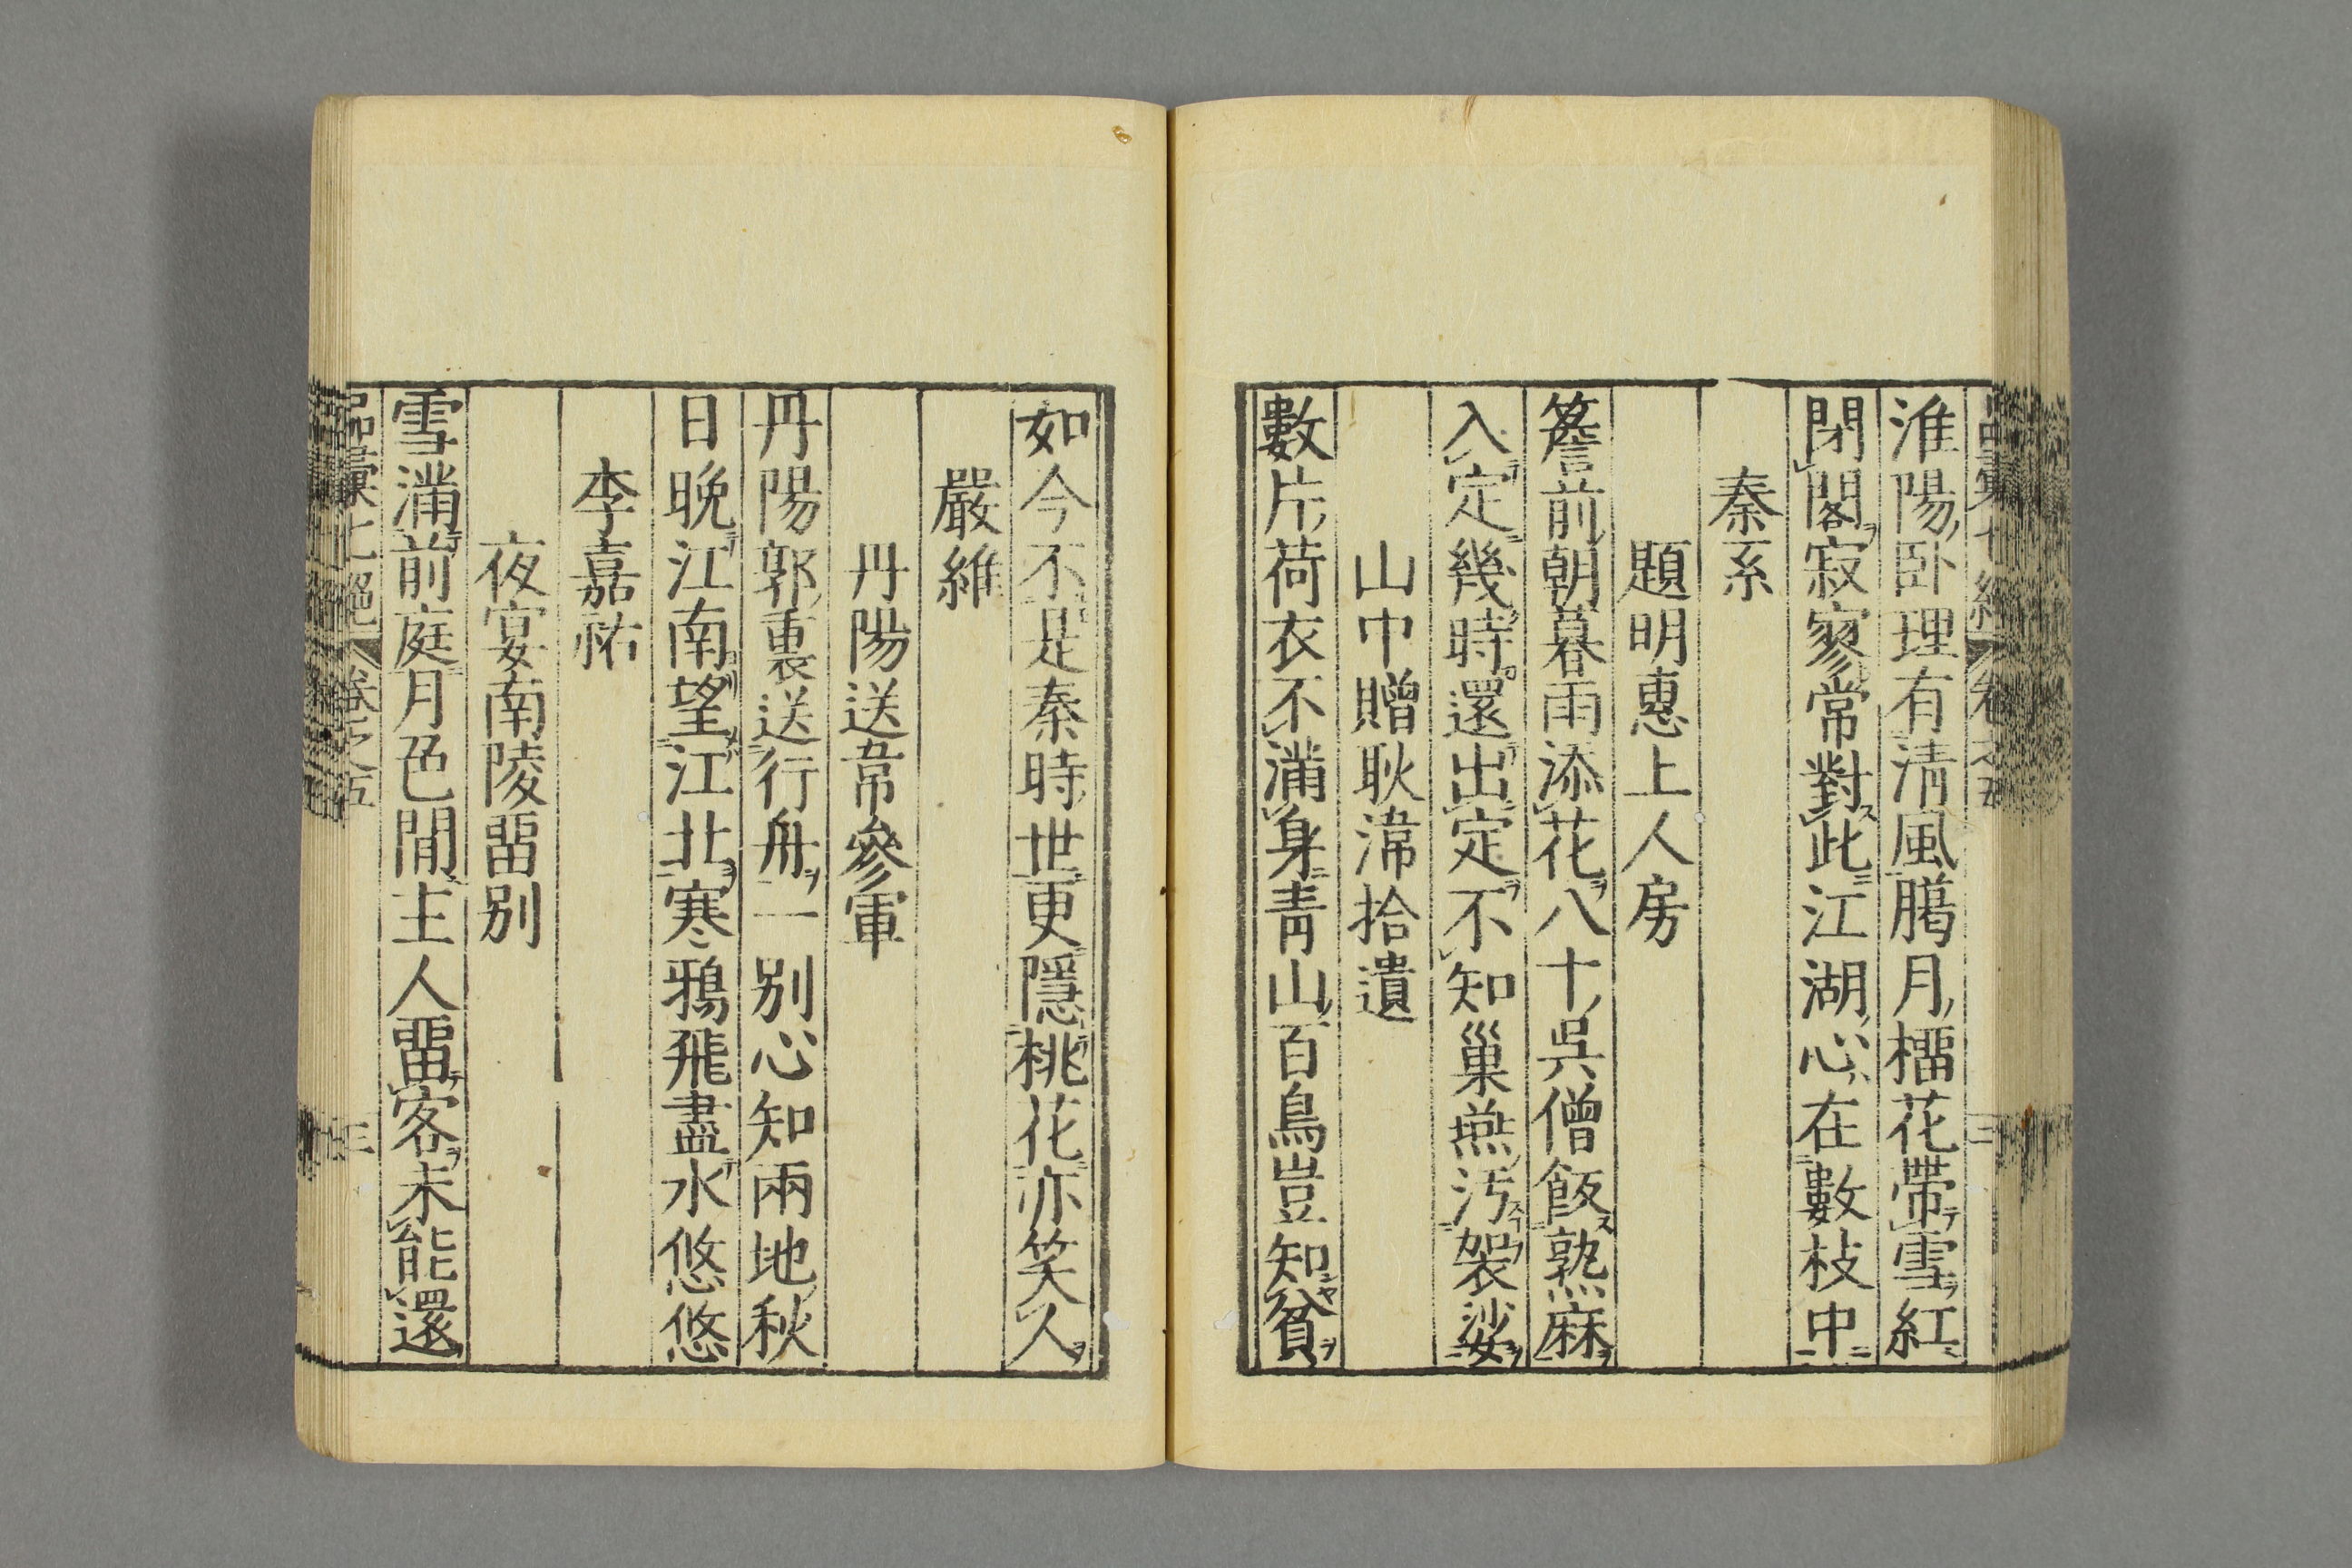 淮陽臥理有清風臈月榴花帶雪紅
閉閣寂寥常對此江湖心在數枝中
秦系
題明惠上人房
簷前朝暮雨添花八十吳僧飯熟麻
入定幾時還出定不知巢燕汚袈裟
山中贈耿湋拾遺
數片荷衣不滿身青山百鳥豈知貧
如今不是秦時世更隱桃花亦笑人
嚴維
丹陽送韋參軍
丹陽郭裏送行舟一別心知兩地秋
日晚江南望江北寒鴉飛盡水悠悠
李嘉祐
夜宴南陵畱別
雪滿前庭月色閒主人畱客未能還
品彙七絕 卷之五